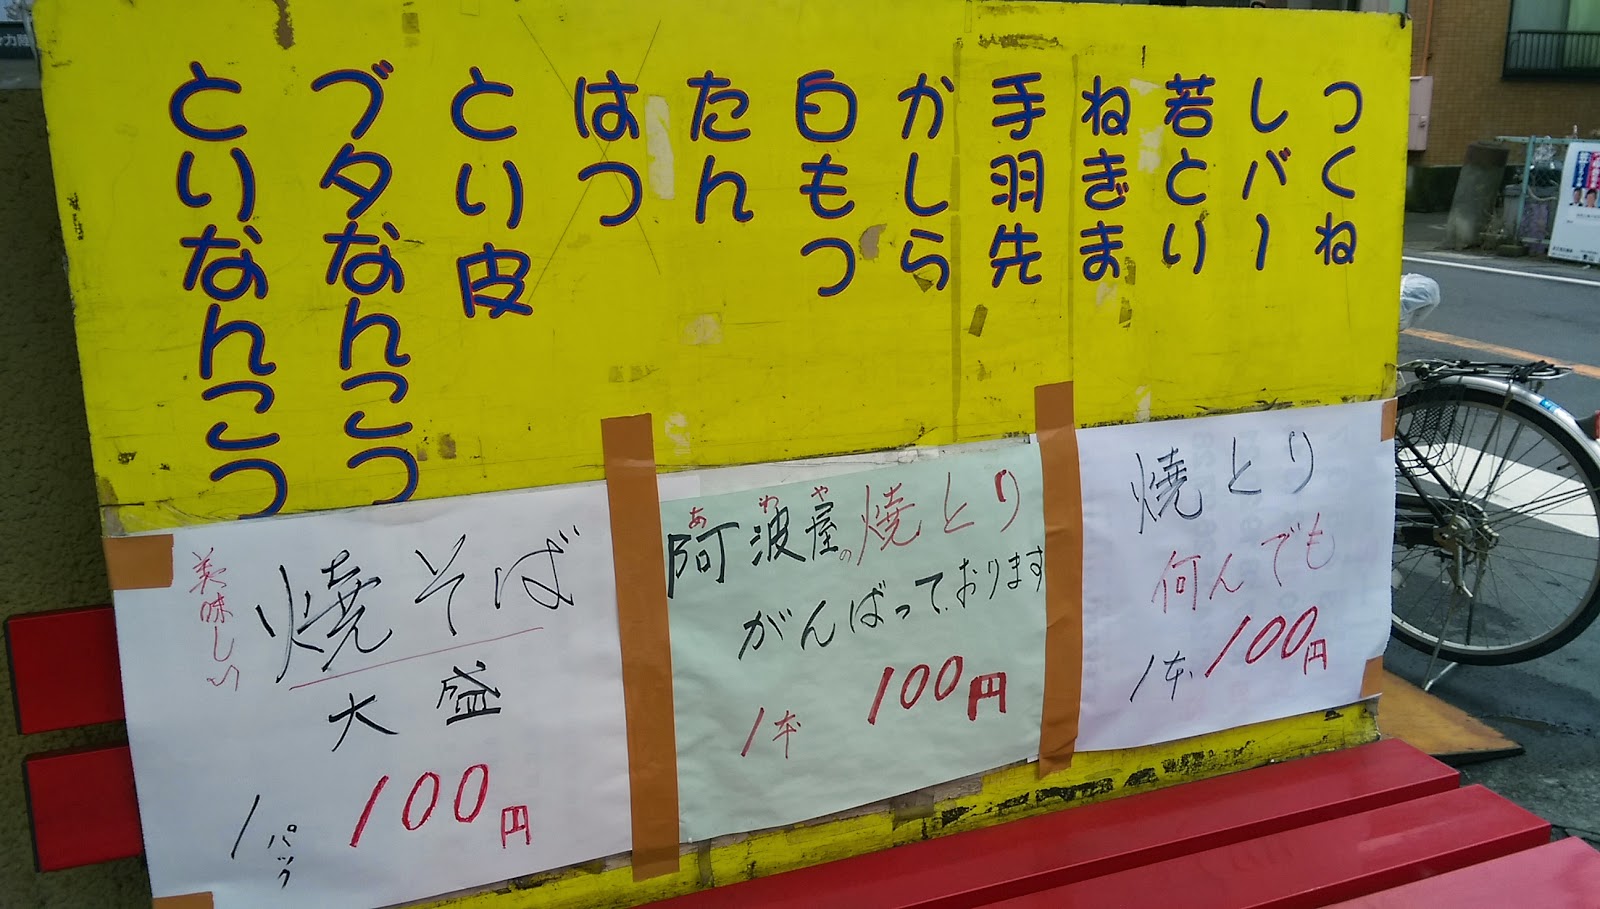 つくね
レバー
若とり
ねぎま
手羽先
かしら
白もつ
たん
はつ
とり皮
ブタなんこつ
とりなんこつ
焼とり
何んでも
1本 100円
あわや
阿波屋の焼とり
がんばっております
1本 100円
美味しい
焼そば
大盛
1パック 100円